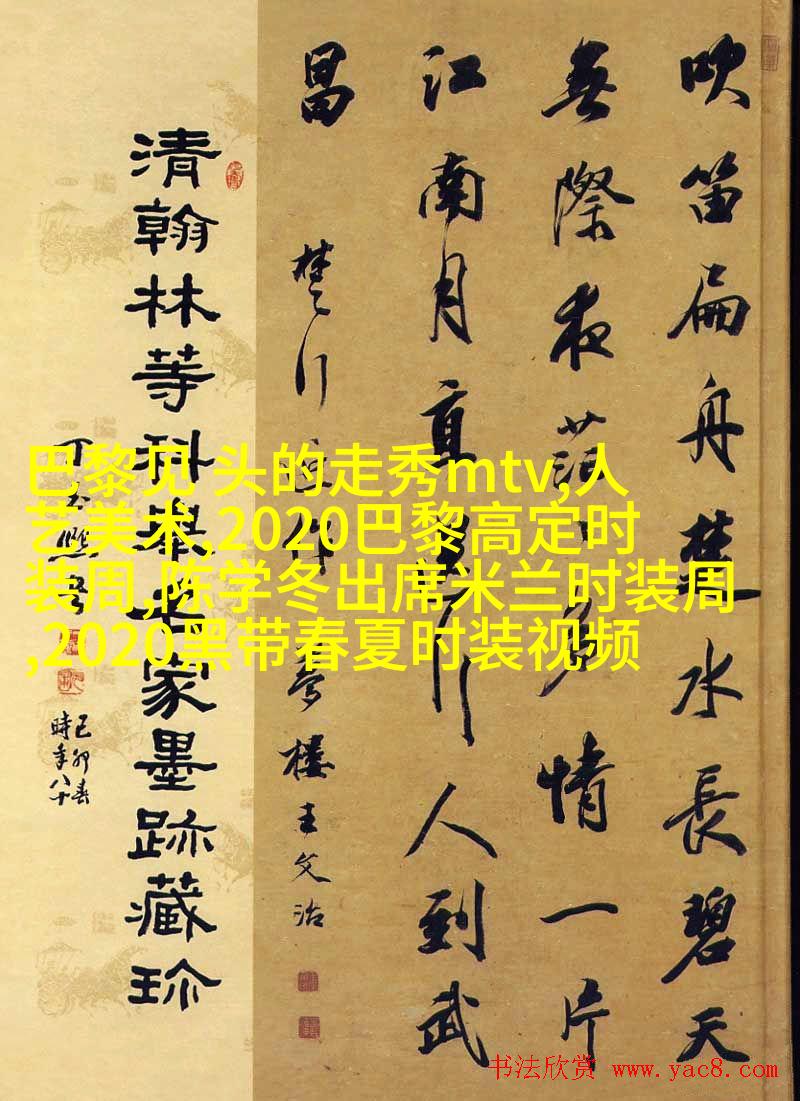 吹笛扁舟楚水長碧天
無際夜茫多情一片
江南月直照行人到武
昌
楚行近作 夢樓王文治
清翰林等科舉之家墨跡藏珍
己卯春
時年八十
巴黎见 头的走秀mtv,人
艺美术,2020巴黎高定时
装周,陈学冬出席米兰时装周
,2020黑带春夏时装视频
书法欣赏 www.yac8.com